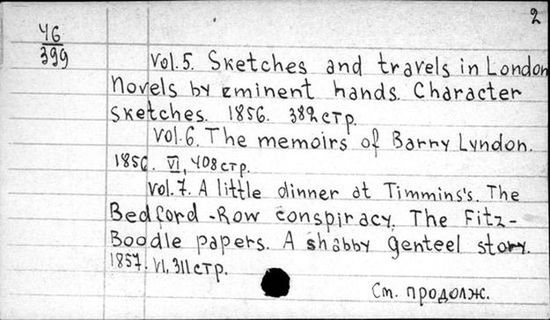 2
46
399
Vol.5. Sketches and travels in London
Novels by eminent hands. Character
sketches. 1856. 382 стр.
Vol.6. The memoirs of Barry Lyndon.
1856. VI, 408 стр.
Vol.7. A little dinner at Timmins's. The
Bedford-Row conspiracy. The Fitz-
Boodle papers. A shabby genteel story.
1857. VI, 311 стр.
См. продолж.